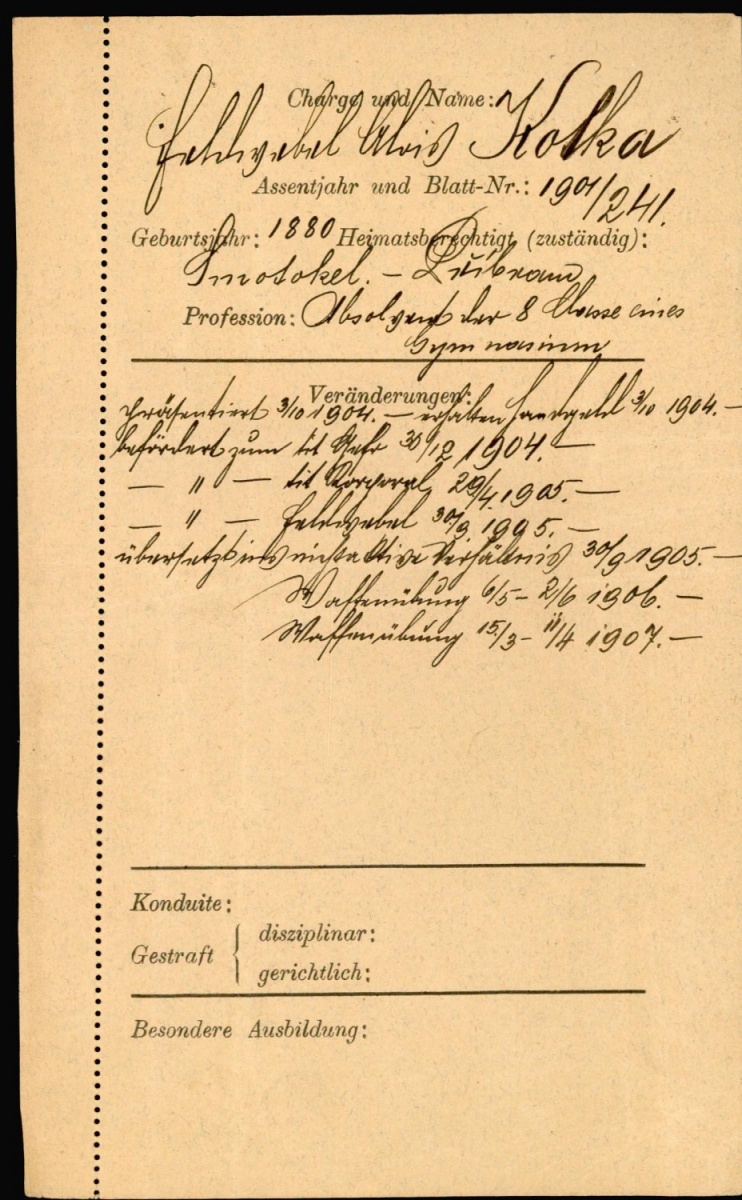 Charge und Name:
Feldwebel Alois Kotka
Assentjahr und Blatt-Nr.: 1901/241.
Geburtsjahr: 1880 Heimatsberechtigt (zuständig):
Smotokel. – Přibram
Profession: Absolvent der 8 Classe eines
Gymnasium
Veränderungen:
präsentiert 3/10 1904. — erhalten Handgeld 3/10 1904. —
befördert zum tit Gefr 30/12 1904. —
— " — tit Korporal 20/4. 1905. —
— " — Feldwebel 30/9 1995. —
übersetzt ins nichtaktive Verhältnis 30/9 1905. —
Waffenübung 6/5 – 2/6 1906. —
Waffenübung 15./3 – 11/4 1907. —
Konduite:
Gestraft { disziplinar:
gerichtlich:
Besondere Ausbildung: